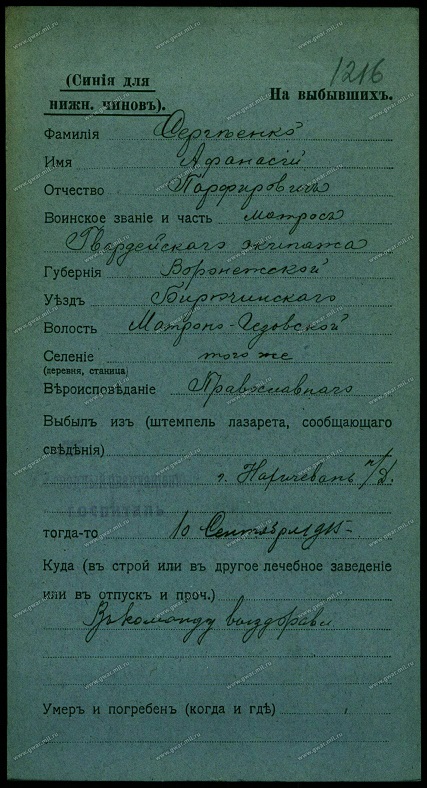 1216
(Синія для
нижн. чиновъ).
На выбывшихъ.
Фамилія Сергѣенко
Имя Афанасій
Отчество Парфировичъ
Воинское званіе и часть матросъ
Гвардейскаго экипажа
Губернія Воронежской
Уѣздъ Бирючинскаго
Волость Матроно-Гедовской
Селеніе того же
(деревня, станица)
Вѣроисповѣданіе Православнаго
Выбылъ изъ (штемпель лазарета, сообщающаго
свѣдѣнія)
г. Нахичевань н/Д.
госпиталь
тогда-то 10 Сентября 1915
Куда (въ строй или въ другое лечебное заведеніе
или въ отпускъ и проч.)
Въ команду выздоравл
Умеръ и погребенъ (когда и гдѣ)
www.gwar.mil.ru